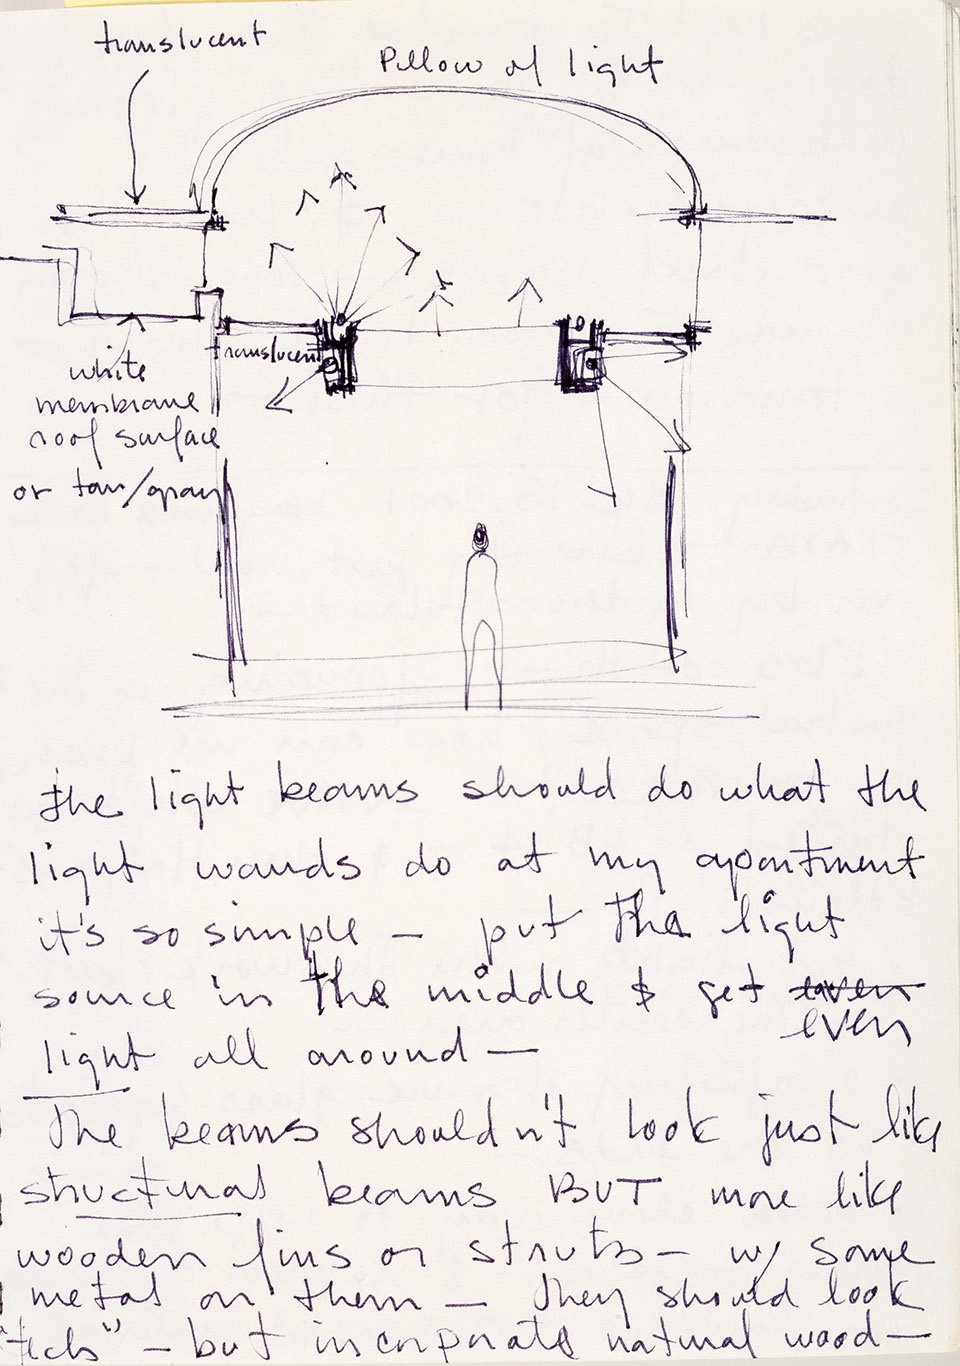 translucent
Pillow of light
translucent
white
membrane
roof surface
or tan/gray
the light beams should do what the
light wands do at my apartment
it's so simple — put the light
source in the middle & get even
even
light all around —
The beams shouldn't look just like
structural beams BUT more like
wooden fins or struts — w/ some
metal on them — They should look
"tech" — but incorporate natural wood —